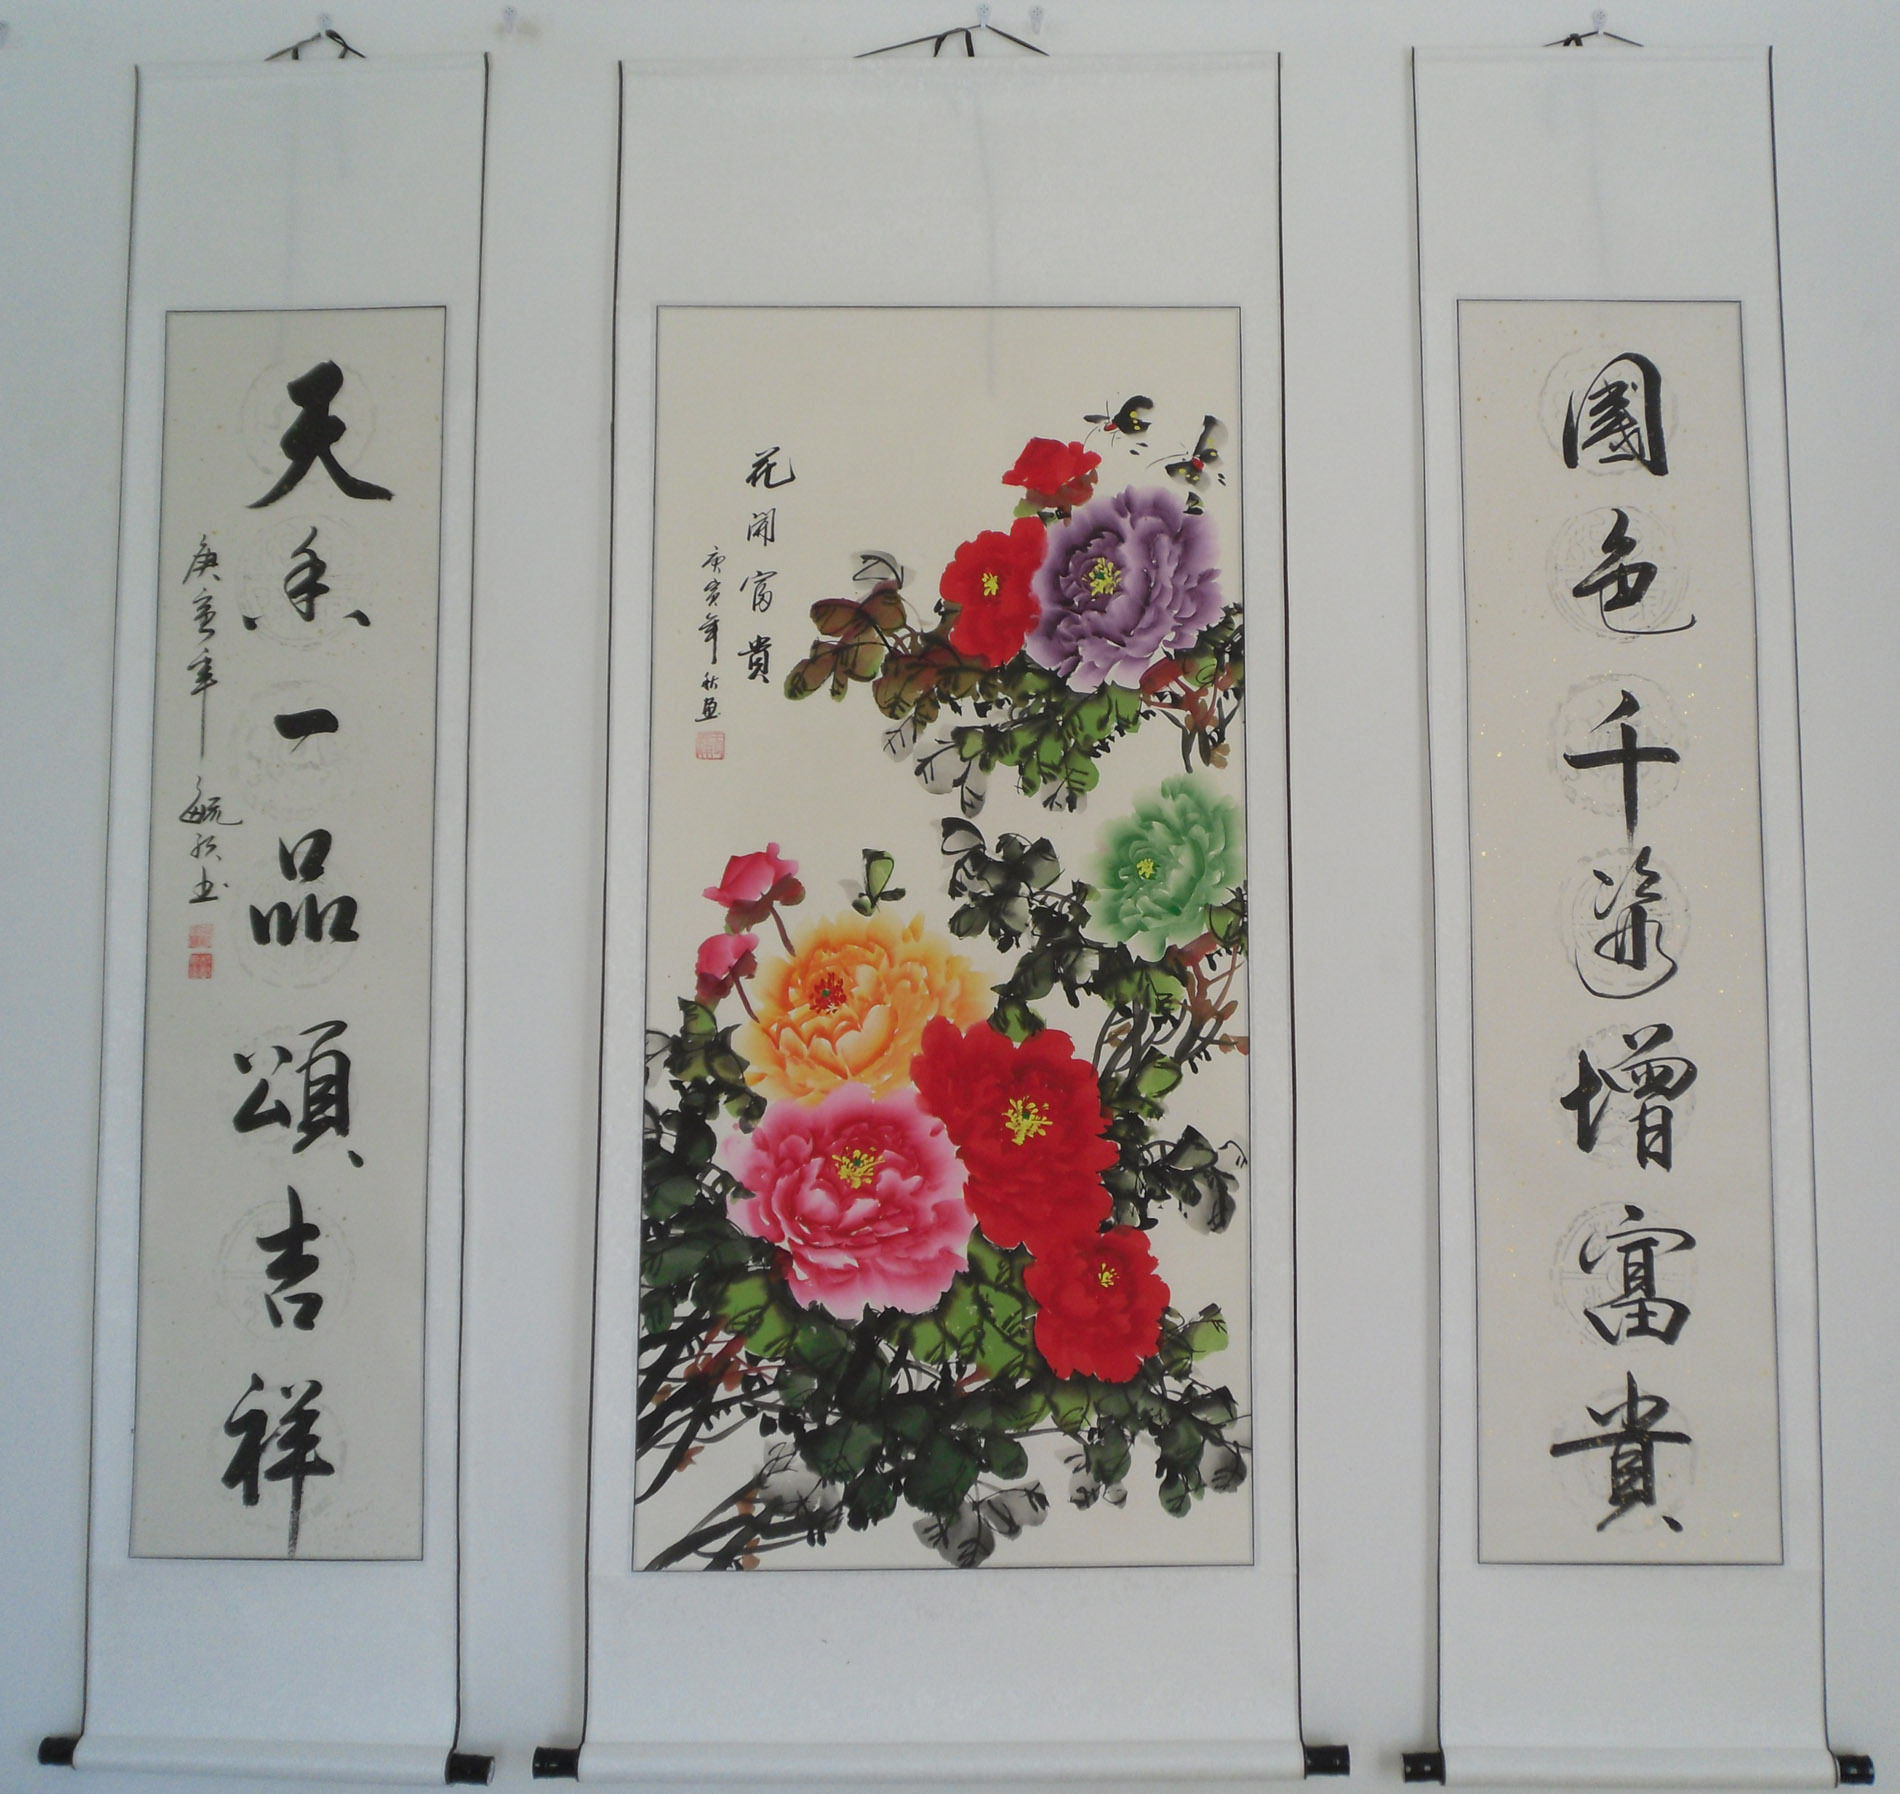 國色千姿增富貴
花開富貴
庚寅年秋畫
天香一品頌吉祥
庚寅年